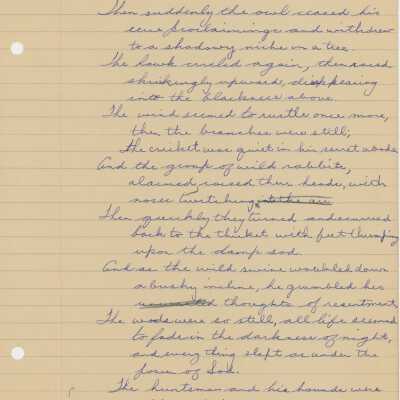 Then suddenly the owl ceased his
eerie proclaimings and withdrew
to a shadowy niche in a tree.
The hawk circled again, then raced
shriekingly upward, disappearing
into the blackness above.
The wind seemed to rustle once more,
then the branches were still;
The cricket was quiet in his secret abode,
And the group of wild rabbits,
alarmed, raised their heads, with
noses twitching into the air
Then quickly they turned and scurried
back to the thicket with feet thumping
upon the damp sod.
And as the wild swine wobbled down
a bushy incline, he grumbled his
thoughts of resentment,
The woods were so still, all life seemed
to fade in the darkness of night,
and every thing slept as under the
of
The huntsman and his hounds were